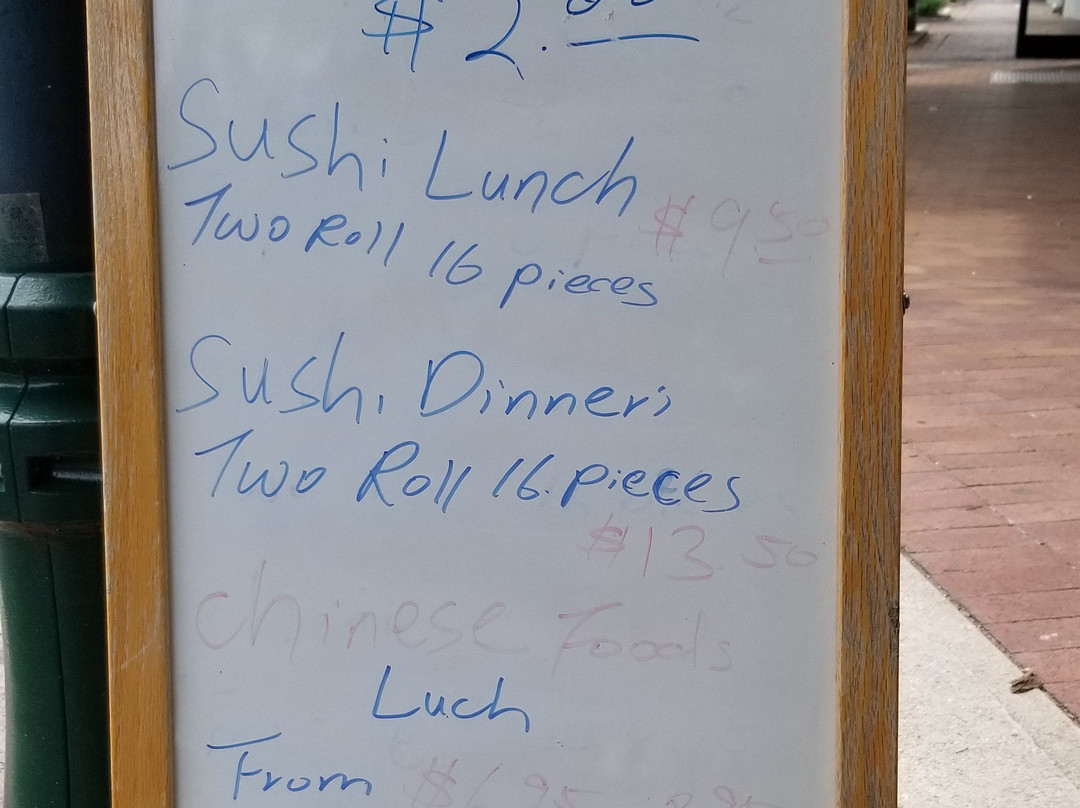 $2.00
Sushi Lunch
Two Roll 16 pieces $9.50
Sushi Dinner;
Two Roll 16.pieces
$13.50
Chinese Foods
Luch
From $6.95